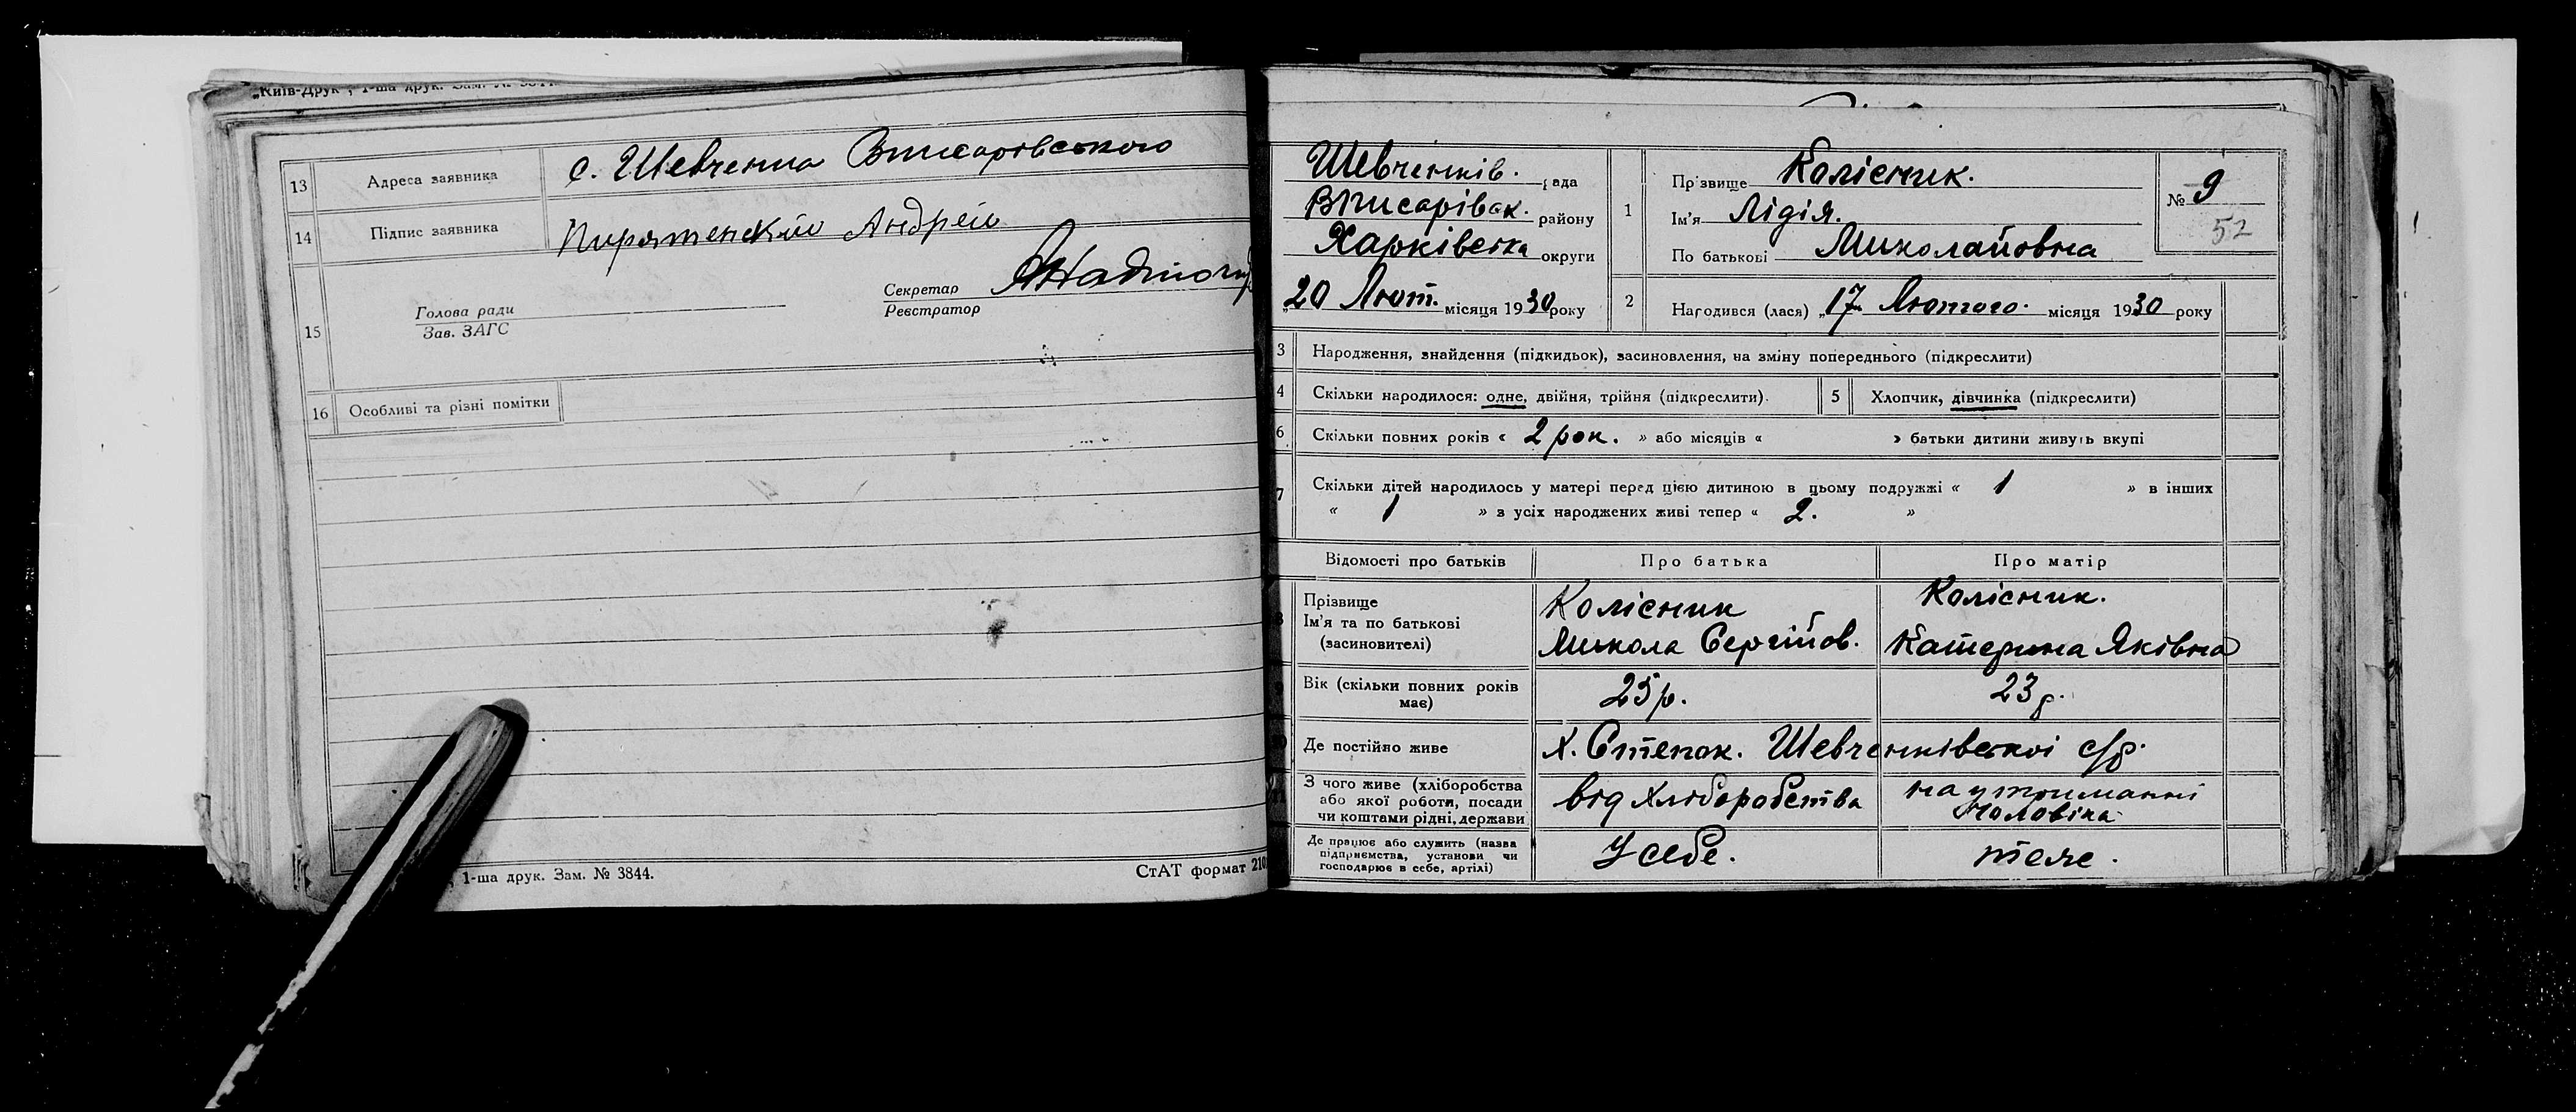 „Київ-Друк", 1-ша друк. Зам. №
13 Адреса заявника с. Шевченка Вписаровського
14 Підпис заявника Пирятенский Андрей
15 Голова ради
Зав. ЗАГС
Секретар
Реєстратор
16 Особливі та різні помітки
1-ша друк. Зам. № 3844.
СтАТ формат 210
Шевченків. рада
ВПисарівск. району
Харківська округи
„20 Лют. місяця 1930 року
1 Прізвище Колісник.
Ім'я Лідія.
По батькові Миколайовна
№ 9
52
2 Народився (лася) „17 Лютого. місяця 1930 року
3 Народження, знайдення (підкидьок), засиновлення, на зміну попереднього (підкреслити)
4 Скільки народилося: одне, двійня, трійня (підкреслити).
5 Хлопчик, дівчинка (підкреслити)
6 Скільки повних років « 2 рок. » або місяців « » батьки дитини живуть вкупі
7 Скільки дітей народилось у матері перед цією дитиною в цьому подружжі « 1 » в інших
« 1 » з усіх народжених живі тепер « 2. »
Відомості про батьків Про батька Про матір
8 Прізвище
Ім'я та по батькові
(засиновителі)
Колісник
Микола Сергійов.
Колісник.
Катерина Яківна
Вік (скільки повних років
має)
25 р.
23 р.
Де постійно живе Х. Степок. Шевченківської с/р.
З чого живе (хліборобства
або якої роботи, посади
чи коштами рідні, держави
від хліборобства
на утриманні
чоловіка
Де працює або служить (назва
підприємства, установи чи
господарює в себе, артілі)
У себе.
теле.